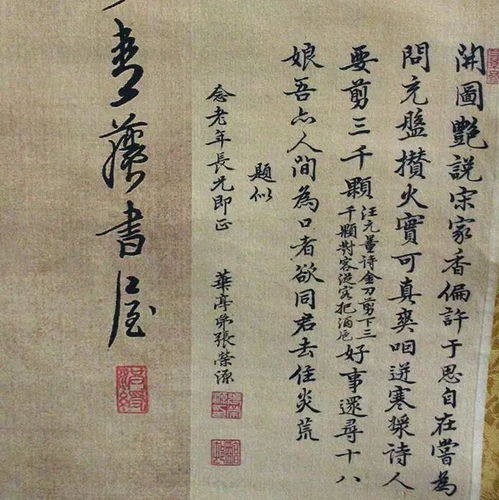 開圖艷說宋家香偏許于思自在嘗為
問充盤攢火實可真爽咽迸寒漿詩人
要剪三千顆
汪元量詩金刀剪下三
千顆對客從容把酒卮
好事還尋十八
娘吾亦人間為口者欲同君去住炎荒
題似
念老年長兄即正 華亭弟張榮源
青藤書屋